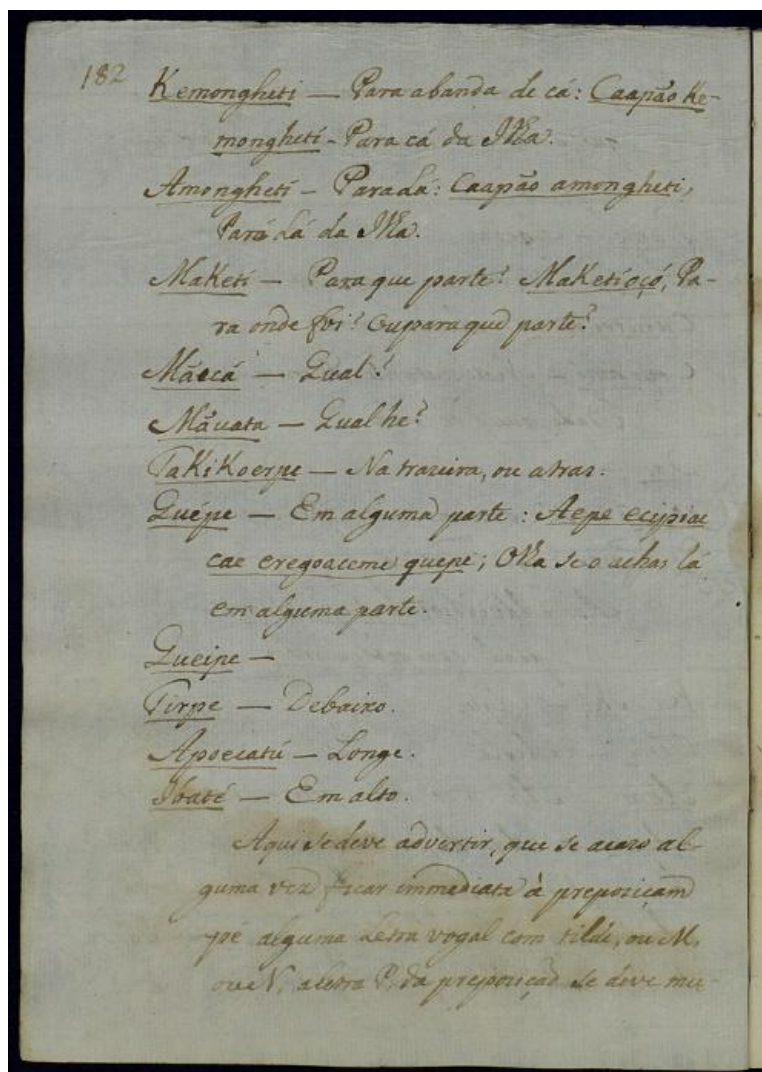 182
Kemongheti — Para abanda de cá: Caapão Ke-
mongheti - Para cá da Ilha.
Amongheti — Paralá: Caapão amongheti,
Pará lá da Ilha.
MaKeti — Para que parte? MaKetioçó, Pa-
ra onde foi? Ouparaque parte?
Mãacá — Qual?
Mãuata — Qual he?
TaKiKoerpe — Na trazeira, ou atras.
Quépe — Em alguma parte: Aepe ecepiac
cae eregoaceme quepe; Olha se o achas lá
em alguma parte.
Queipe —
Tirpe — Debaixo.
Apoecatú — Longe.
Ibaté — Em alto.
Aqui se deve advertir, que se acazo al-
guma vez ficar immediata à preposiçam
pé alguma Letra vogal com tilde, ou M,
ou N, aletra P, da preposiçaõ se deve mu-